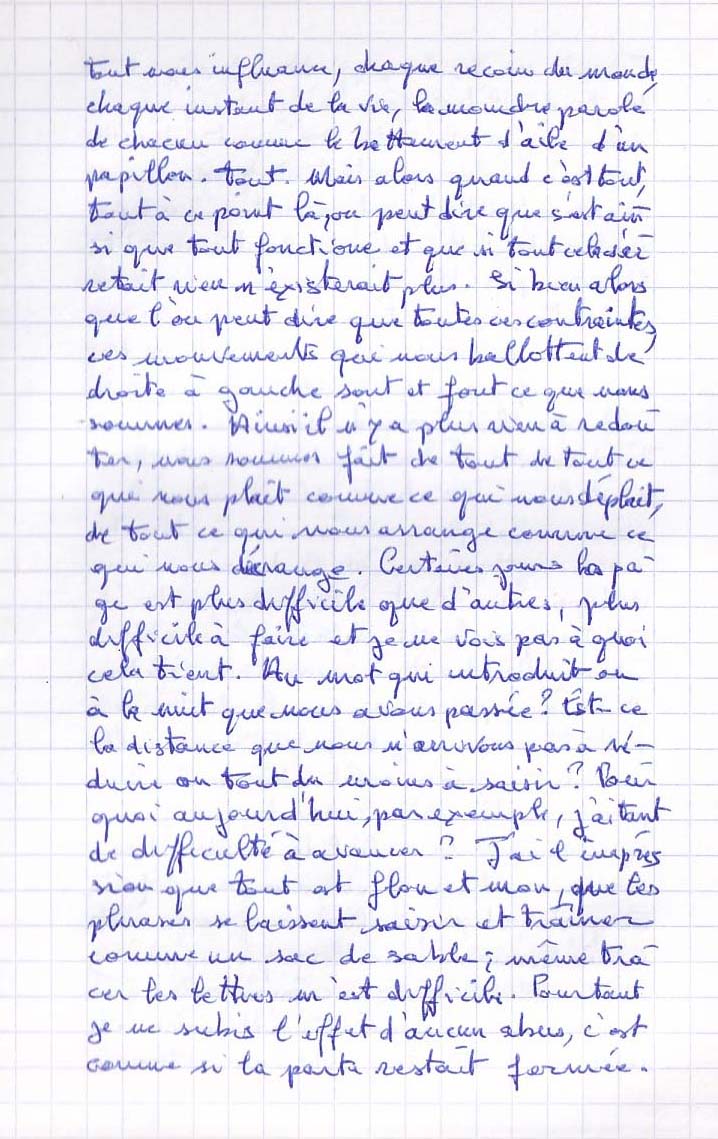 tout nous influence, chaque recoin du monde,
chaque instant de la vie, la moindre parole
de chacun comme le battement d'aile d'un
papillon. tout. Mais alors quand c'est tout,
tout à ce point là, on peut dire que s'est ain
si que tout fonctione et que si tout cela s'ar
retait rien n'existerait plus. Si bien alors
que l'on peut dire que toutes ces contraintes,
ces mouvements qui nous ballottent de
droite à gauche sont et font ce que nous
sommes. Ainsi il n'y a plus rien à redou
ter, nous sommes fait de tout de tout ce
qui nous plaît comme ce qui nous déplait,
de tout ce qui nous arrange comme ce
qui nous dérange. Certaines jours la pa
ge est plus difficile que d'autres, plus
difficile à faire et je ne vois pas à quoi
cela tient. Au mot qui introduit ou
à la nuit que nous avons passée? Est-ce
la distance que nous n'arrivons pas à ré-
duire ou tout du moins à saisir? Pour
quoi aujourd'hui, par exemple, j'ai tant
de difficulté à avancer? J'ai l'impres
sion que tout est flou et mou, que les
phrases se laissent saisir et traîner
comme un sac de sable; même tra
cer les lettres m'est difficile. Pourtant
je ne subis l'effet d'aucun abus, c'est
comme si la porte restait fermée.